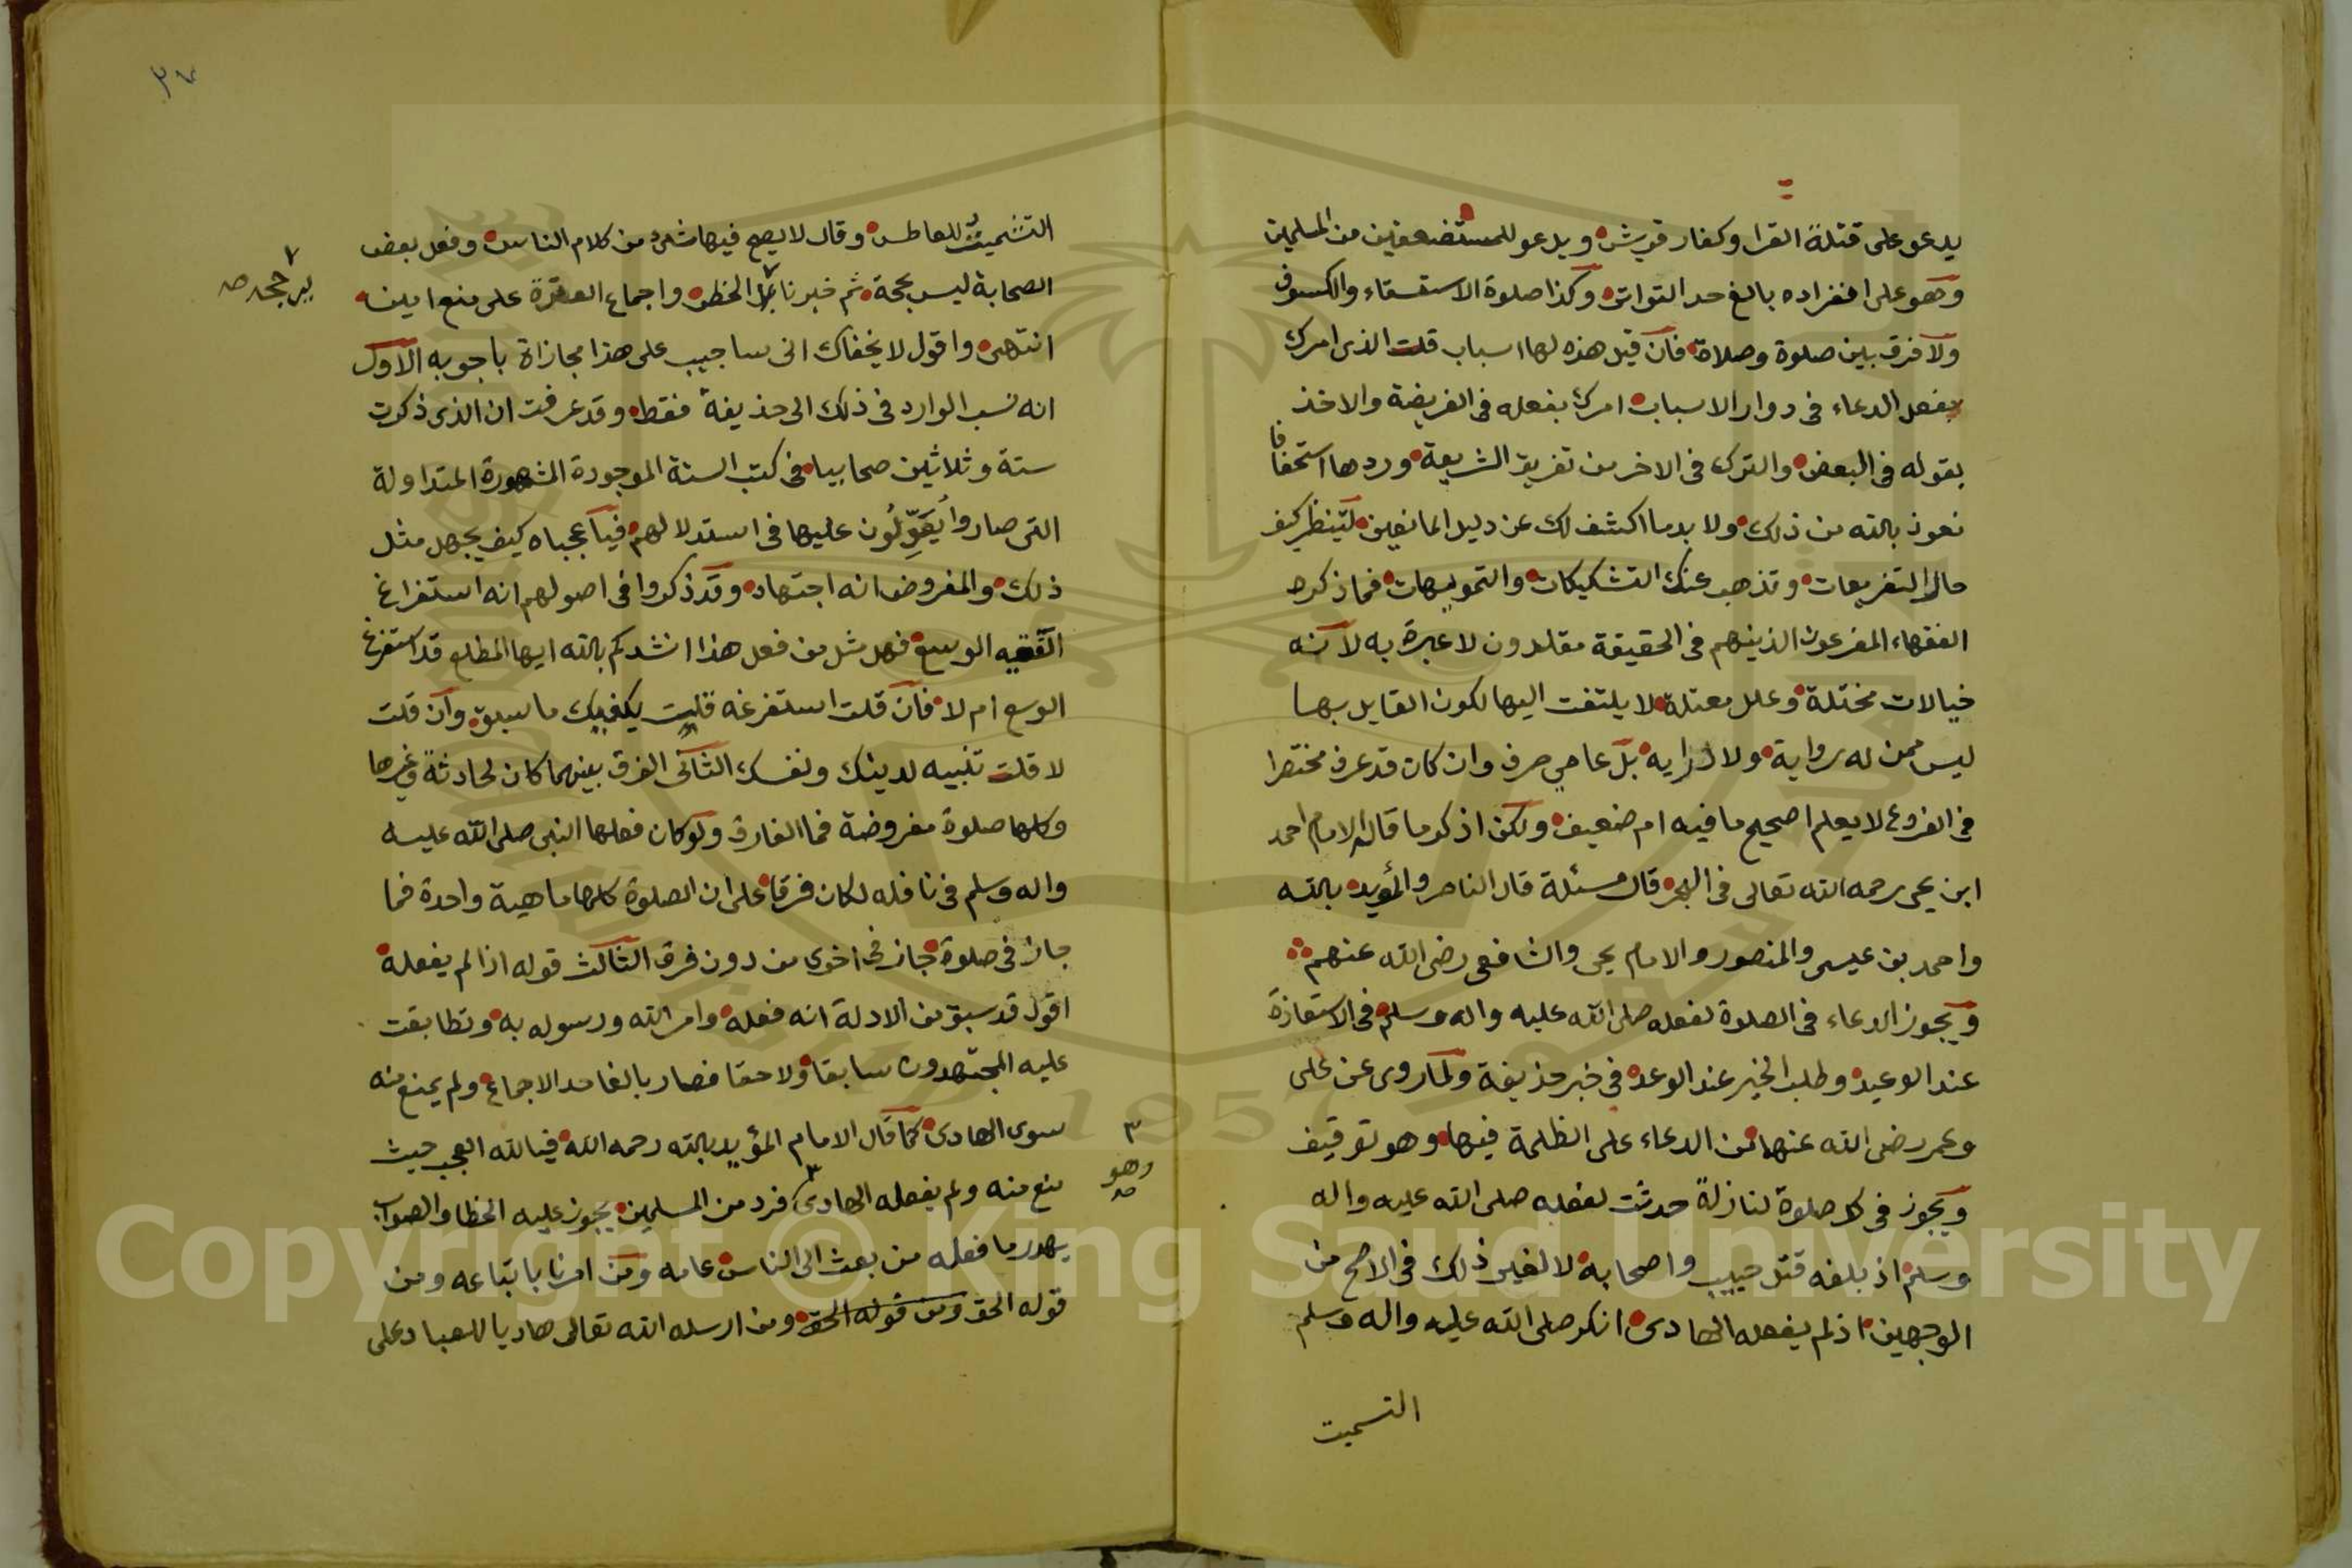 يدعو على قتلة القرا وكفار قريش ويدعو للمستضعفين من المسلمين
وهو على انفراده بالغ حد التواتر وكذا صلوة الاستسقاء والكسوف
ولا فرق بين صلوة وصلاة فان قيل هذه لها اسباب قلت الذى امرك
بفعل الدعاء فى دوار الاسباب امرك بفعله فى الفريضة والاخذ
بقوله فى البعض والترك فى الاخر من تفريق الشريعة وردها استخفافا
نعوذ بالله من ذلك ولا بد ما اكشف لك عن دليل المانعين لتنظر كيف
حال التفريعات وتذهب عنك التشكيكات والتمويهات فما ذكره
الفقهاء المفرعون الذينهم فى الحقيقة مقلدون لا عبرة به لانه
خيالات مختلة وعلل معتلة لا يلتفت اليها لكون القايل بها
ليس ممن له رواية ولا دراية بل عامي صرف وان كان قد عرف مختصرا
فى الفروع لا يعلم اصحيح ما فيه ام ضعيف ولكن اذكر ما قال الامام احمد
ابن يحى رحمه الله تعالى فى البحر قال مسئلة قال الناصر والمؤيد بالله
واحمد بن عيسى والمنصور والامام يحى والشافعى رضى الله عنهم
ويجوز الدعاء فى الصلوة لفعله صلى الله عليه واله وسلم فى الاستعاذة
عند الوعيد وطلب الخير عند الوعد فى خبر حذيفة ولما روى عن على
وعمر رضى الله عنهما من الدعاء على الظلمة فيها وهو توقيف
ويجوز فى كل صلوة لنازلة حدثت لفعله صلى الله عليه واله
وسلم اذ بلغه قتل خبيب واصحابه لا لغير ذلك فى الاصح من
الوجهين اذ لم يفعله الهادى انكر صلى الله عليه واله وسلم
التسميت
٣٧
التشميت للعاطس وقال لا يصح فيها شئ من كلام الناس وفعل بعض
الصحابة ليس بحجة ثم خبرنا الحظر واجماع العترة على منع امين
يرجحه صح
انتهى واقول لا يخفاك انى ساجيب على هذا مجازاة باجوبه الاول
انه نسب الوارد فى ذلك الى حذيفة فقط وقد عرفت ان الذى ذكرت
ستة وثلاثين صحابيا فى كتب السنة الموجودة المشهورة المتداولة
التى صاروا يُعَوِّلُون عليها فى استدلالهم فيا عجباه كيف يجهل مثل
ذلك والمفروض انه اجتهاد وقد ذكروا فى اصولهم انه استفراغ
الفقيه الوسع فهل مثل من فعل هذا انشدكم بالله ايها المطلع قد استفرغ
الوسع ام لا فان قلت استفرغه قلت يكفيك ما سبق وان قلت
لا قلت تنبيه لدينك ونفسك الثانى الفرق بينهما كان لحادثة وغيرها
وكلها صلوة مفروضة فما الفارق ولو كان فعلها النبى صلى الله عليه
واله وسلم فى نافله لكان فرقا على ان الصلوة كلها ماهية واحدة فما
جاز فى صلوة جاز فى اخرى من دون فرق الثالث قوله اذا لم يفعله
اقول قد سبق من الادلة انه فعله وامر الله ورسوله به وتطابقت
عليه المجتهدون سابقا ولاحقا فصار بالغا حد الاجماع ولم يمنع منه
سوى الهادى كما قال الامام المؤيد بالله رحمه الله فيا لله العجب حيث
منع منه ولم يفعله الهادى فرد من المسلمين يجوز عليه الخطا والصواب
٣ وهو صح
يهدر ما فعله من بعث الى الناس عامه ومن امرنا باتباعه ومن
قوله الحق ومن قوله الحق ومن ارسله الله تعالى هاديا للعباد على
Copyright © King Saud University
1957